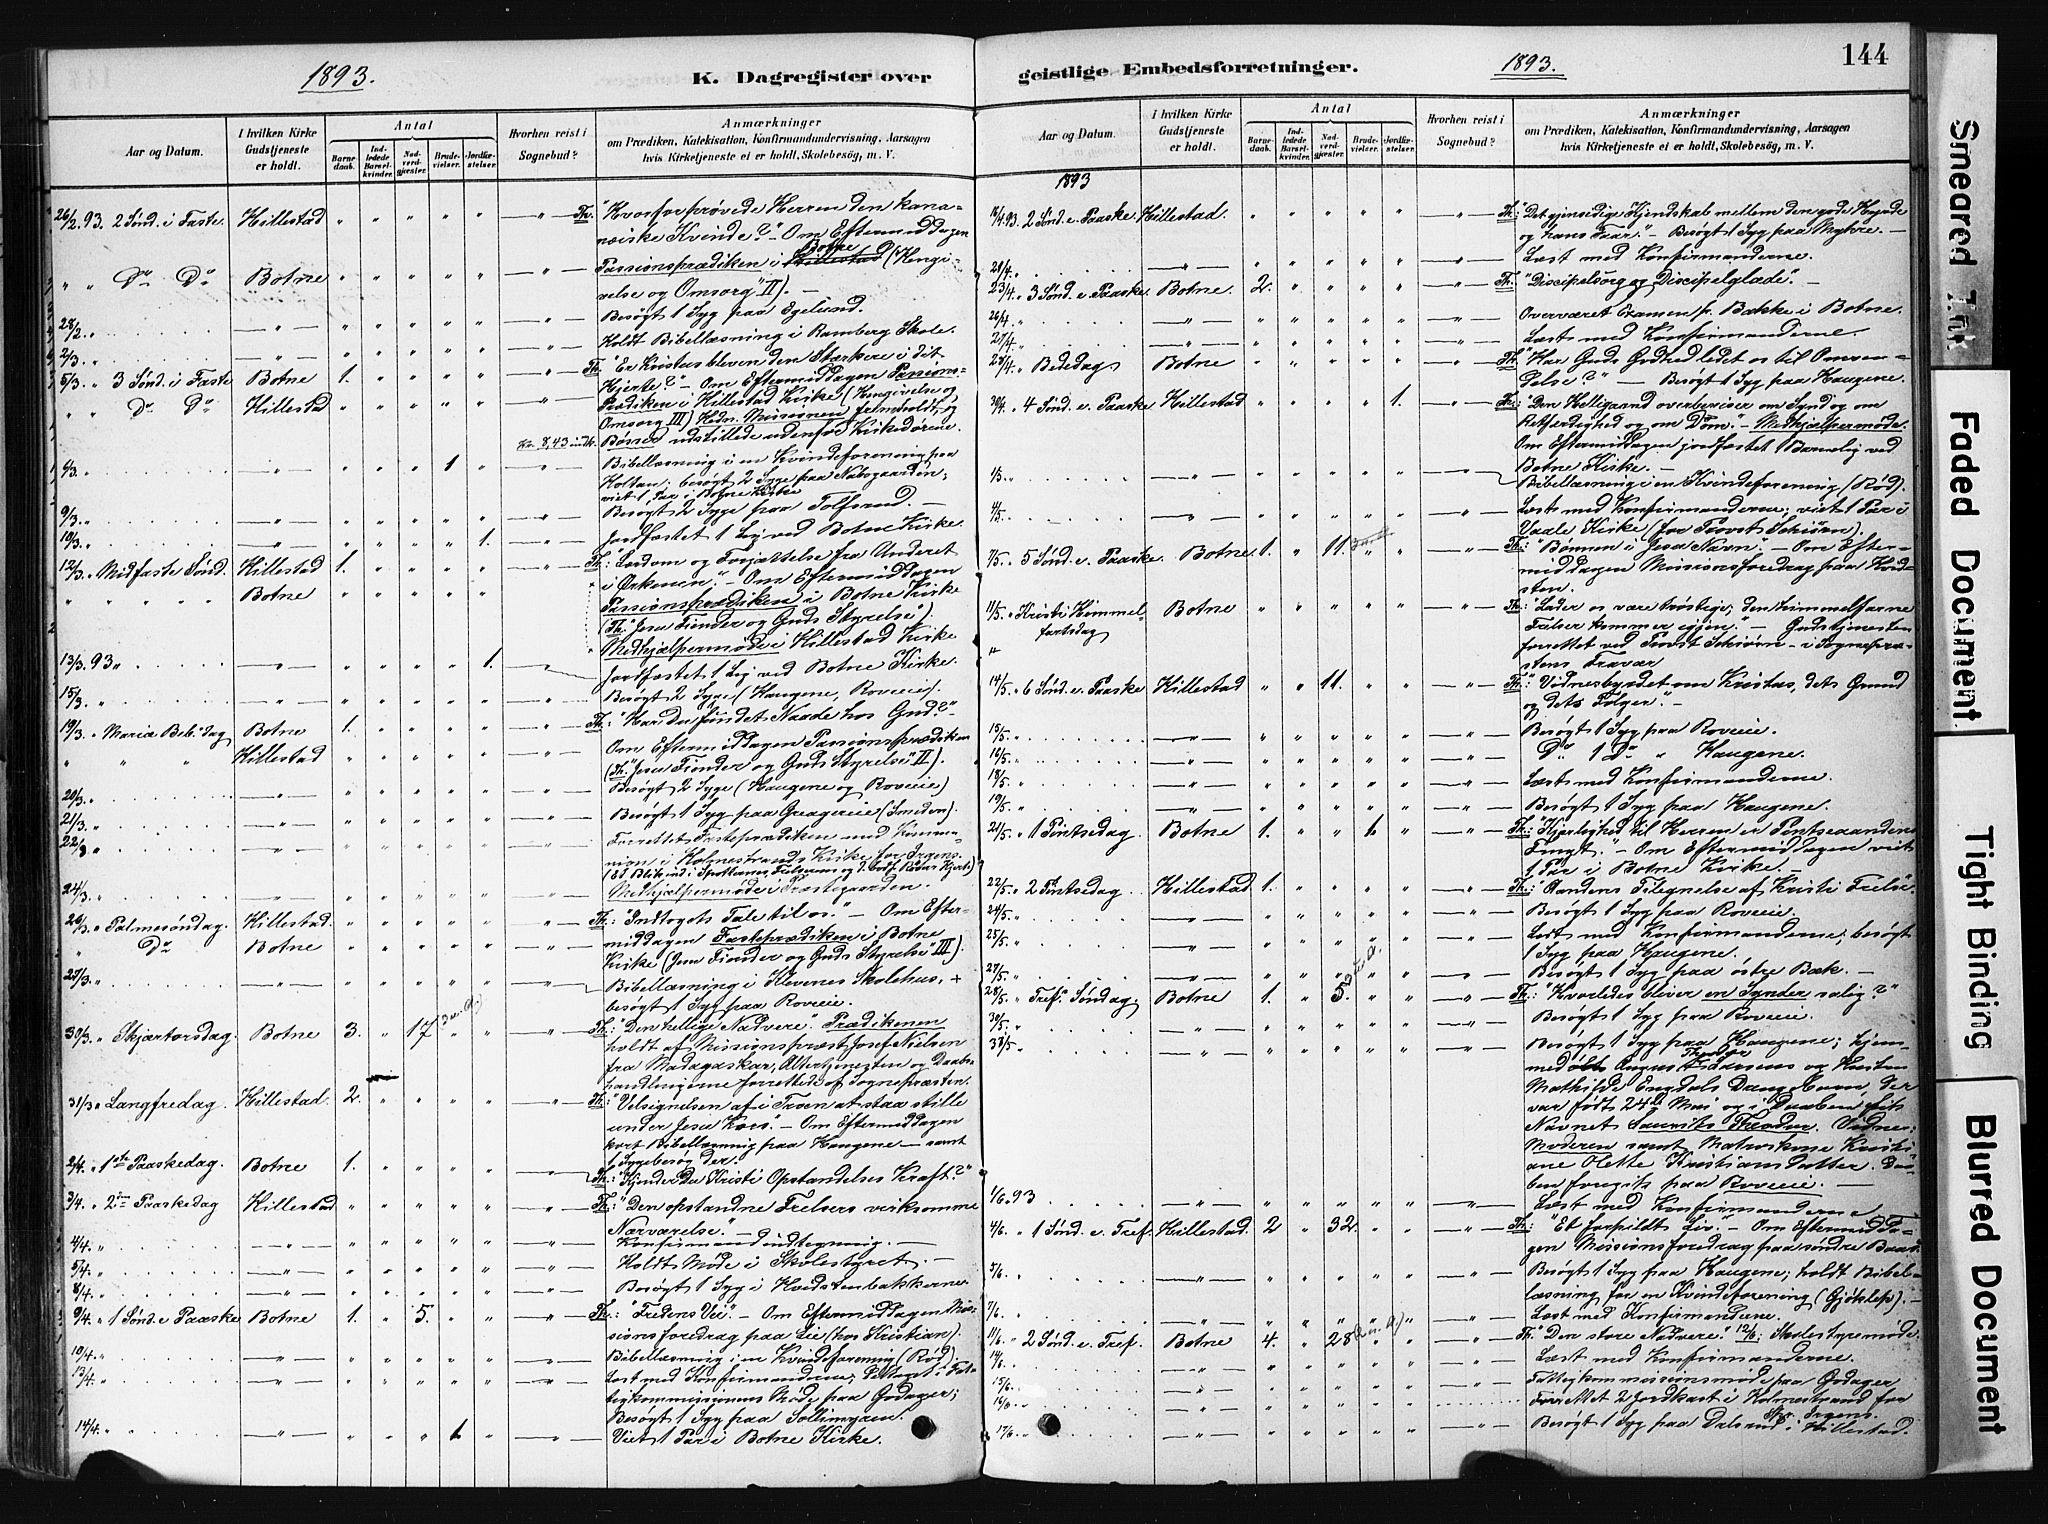 1893.
K. Dagregister over
geistlige Embedsforretninger.
1893.
144
Aar og Datum.
I hvilken Kirke Gudstjeneste er holdt.
Antal
Barnedaab.
Indledede Barselkvinder.
Nadverdgjæster.
Brudevielser.
Jordfæstelser.
Hvorhen reist i Sognebud?
Anmærkninger
om Prædiken, Katekisation, Konfirmandundervisning, Aarsagen
hvis Kirketjeneste ei er holdt, Skolebesög, m. V.
26/2 93. 2 Sønd. i Faste Hillestad " " " " " — " — Th. "Hvorfor prøvede Herren den kana-
næiske Kvinde?" - Om Eftermiddagen
Passionsprædiken i Hillestad Botne (Hengi-
" " Do Do Botne " " " " " — " — velse og Omsorg" II). —
28/2 " — " — " " " " " — " — Besøgt 1 Syg paa Egelund.
2/3. " — " — " " " " " — " — Holdt Bibellæsning i Ramberg Skole.
5/3 " 3 Sønd. i Faste Botne 1. " " " " — " — Th. "Er Kristus bleven den Stærkere i dit
Hjerte?" - Om Eftermiddagen Passions-
" " Do Do Hillestad " " " " " — " — Prædiken i Hillestad Kirke (Hengivelse og
Omsorg III) Hedn. Missionen fremholdt, og
Kr. 8,43 indk. Bøsser udstillede udenfor Kirkedørene.
6/3. " — " — " " " 1 " — " — Bibellæsning i en Kvindeforening paa
Holtan; besøgt 2 Syge paa Nabogaarden;
viet 1 Par i Botne Kirke
9/3. " — " — " " " " " — " — Besøgt 2 Syge paa Tolfsrud. —
10/3. " — " — " " " " 1. — " — Jordfæstet 1 Lig ved Botne Kirke.
12/3. " Midfaste Sønd. Hillestad 1. " " " " — " — Th: Lærdom og Forjættelse fra Underet
i Ørkenen." - Om Eftermiddagen
" " " " Botne " " " " " Passionsprædiken i Botne Kirke
(Th. "Jesu Fiender og Guds Styrelse")
Medhjælpermøde i Hillestad Kirke
13/3. 93 " — " — " " " " 1. — " — Jordfæstet 1 Lig ved Botne Kirke.
15/3. " — " — " " " " " — " — Besøgt 2 Syge (Haugene, Roveie).
19/3. " Mariæ Beb. dag Botne 1. " " " " — " — Th: "Har Du fundet Naade hos Gud?"
" " " Hillestad " " " " " — " — Om Eftermiddagen Passionsprædiken
(Th. "Jesu Fiender og Guds Styrelse" II).
20/3. " — " — " " " " " — " — Besøgt 2 Syge (Haugene og Roveie)
21/3. " — " — " " " " " — " — Besøgt 1 Syg paa Graagereie (Smeden).
22/3 " — " — " " " " " — " — Forrettet Fasteprædiken med Kommu-
nion i Holmestrands Kirke for Irgens.
24/3. " — " — " " " " " — " — Medhjælpermøde i Præstegaarden.
26/3. " Palmesøndag. Hillestad " " " " " — " — Th: "Indtogets Tale til os." - Om Efter-
" Do Botne " " " " " — " — middagen Fasteprædiken i Botne
Kirke (Jesu Fiender og Guds Styrelse" III).
27/3. " — " — " " " " " — " — Bibellæsning i Klevenes Skolehus, +
besøgt 1 Syg paa Roveie.
30/3. " Skjærtorsdag. Botne 3. " 17 " " — " — Th: "Den hellige Nadvere". Prædikenen
holdt af Missionspræst Josef Nielsen
fra Madagaskar, Altertjenesten og Daabs-
handlingerne forrettede af Sognepræsten.
31/3 " Langfredag. Hillestad. 2. " " " " — " — Th: "Velsignelsen af i Troen at staa stille
under Jesu Kors. - Om Eftermiddagen
kort Bibellæsning paa Haugene — samt
1 Sygebesøg der.
2/4. " 1ste Paaskedag. Botne 1. " " " " — " — Th: "Kjender Du Kristi Opstandelses Kraft?"
3/4. " 2den Paaskedag Hillestad " " " " " — " — Th: "Den opstandne Frelsers virksomme
Nærværelse". —
4/4. " — " — " " " " " — " — Konfirmandindtegning. —
5/4. " — " — " " " " " — " — Holdt Møde i Skolestyret. —
8/4. " — " — " " " " " — " — Besøgt 1 Syg i Hvidstenbakkerne
9/4. " 1 Sønd. e. Paaske Botne 1. " 5. " " — " — Th: "Fredens Vei". - Om Eftermiddagen Mis-
sionsforedrag paa Lie (hos Kristian).
10/4. " — " — " " " " " — " — Bibellæsning i en Kvindeforening (Rød).
13/4. " — " — " " " " " — " — Læst med Konfirmanderne; Deltaget i Fat-
tigkommissionens Møde paa Godager;
Besøgt 1 Syg paa Sollimyren.
14/4. " — " — " " " 1 " — " — Viet 1 Par i Botne Kirke.
Aar og Datum.
I hvilken Kirke Gudstjeneste er holdt.
Antal
Barnedaab.
Indledede Barselkvinder.
Nadverdgjæster.
Brudevielser.
Jordfæstelser.
Hvorhen reist i Sognebud?
Anmærkninger
om Prædiken, Katekisation, Konfirmandundervisning, Aarsagen
hvis Kirketjeneste ei er holdt, Skolebesög, m. V.
1893
16/4. 93. 2 Sønd. e. Paaske Hillestad. " " " " " — " — Th: "Det gjensidige Kjendskab mellem den gode Hyrde
og hans Faar." - Besøgt 1 Syg paa Myhre. —
20/4. " — " — " " " " " — " — Læst med Konfirmanderne.
23/4. " 3 Sønd. e. Paaske. Botne. 2. " " " " — " — Th: "Discipelsorg og Discipelglæde". —
26/4. " — " — " " " " " — " — Overværet Examen p. Bække i Botne.
27/4. " — " — " " " " " — " — Læst med Konfirmanderne.
28/4. " Bededag Botne " " " " " — " — Th: "Har Guds Godhed ledet os til Omven-
delse?" — Besøgt 1 Syg paa Haugene.
30/4. " 4 Sønd. e. Paaske Hillestad " " " " 1. — " — Th: "Den Helligaand overbeviser om Synd og om
Retfærdighed og om Dom." - Medhjælpermøde.
Om Eftermiddagen jordfæstet 1 Barnelig ved
Botne Kirke. —
1/5. " — " — " " " " " — " — Bibellæsning i en Kvindeforening (Rød).
4/5. " — " — " " " " " — " — Læst med Konfirmanderne; viet 1 Par i
Vaale Kirke (for Provst Schiørn).
7/5. " 5 Sønd. e. Paaske. Botne. 1. " 11. " " — " — Th: "Bønnen i Jesu Navn". - Om Efter-
middagen Missionsforedrag paa Hvid-
sten.
11/5. " Kristi Himmel- Botne " " " " " — " — Th: "Lader os være trøstige; den himmelfarne
fartsdag Frelser kommer igjen." — Gudstjenesten
forrettet ved Provst Schiørn - i Sognepræ-
stens Fravær
14/5. " 6 Sønd. e. Paaske Hillestad " " 11. " " — " — Th: "Vidnesbyrdet om Kristus, dets Grund
og dets Følger." —
15/5. " — " — " " " " " — " — Besøgt 1 Syg paa Roveie.
16/5. " — " — " " " " " — " — Do 1 Do " Haugene.
18/5. " — " — " " " " " — " — Læst med Konfirmanderne.
19/5. " — " — " " " " " — " — Besøgt 1 Syg paa Haugene.
21/5. " 1 Pintsedag. Botne. 1. " " 1 " — " — Th: "Kjærlighed til Herren er Pintseaandens
Frugt." - Om Eftermiddagen viet
1 Par i Botne Kirke. —
22/5. " 2 Pintsedag. Hillestad 1. " " " " — " — Th: "Aandens Tilegnelse af Kristi Frelse.
24/5. " — " — " " " " " — " — Besøgt 1 Syg paa Roveie.
25/5. " — " — " " " " " — " — Læst med Konfirmanderne; besøgt
1 Syg paa Haugene.
27/5. " — " — " " " " " — " — Besøgt 1 Syg paa østre Bæk. —
28/5. " Tref. Søndag. Botne 1. " 5. " " — " — Th: "Hvorledes bliver en Synder salig?"
30/5. " — " — " " " " " — " — Besøgt 1 Syg paa Roveie.
31/5. " — " — " " " " " — " — Besøgt 1 Syg paa Haugene; hjem-
Mathilde Engdals Drengebarn, der
var født 24de Mai og i Daaben fik
Navnet Laurits Theodor. Vidner:
Moderen samt Matroskone Kristi-
ane Olette Kristiansdatter. Daa-
ben foregik paa Roveie. —
1/6. 93 — " — " " " " " — " — Læst med Konfirmanderne
4/6. " 1 Sønd. e. Tref. Hillestad. 2 " 32. " " — " — Th: "Et forspildt Liv." - Om Eftermidda-
gen Missionsforedrag paa søndre Baas
5/6. " — " — " " " " " — " — Besøgt 1 Syg paa Haugene; holdt Bibel-
læsning for en Kvindeforening (Gjøklep). —
7/6. " — " — " " " " " — " — Læst med Konfirmanderne.
11/6. " 2 Sønd. e. Tref. Botne 4. " 28 " " — " — Th: "Den store Nadvere". 12/6: Skolestyremøde.
14/6. " — " — " " " " " — " — Læst med Konfirmanderne.
15/6. " — " — " " " " " — " — Fattigkommissionsmøde paa Godager
16/6. " — " — " " " " " Forrettet 2 Jordkast i Holmestrand for
Spr. Irgens.
17/6. " — " — " " " " " — " — Besøgt 1 Syg paa Dalsrud i Hillestad.
Smeared Ink
Faded Document.
Tight Binding
Blurred Document